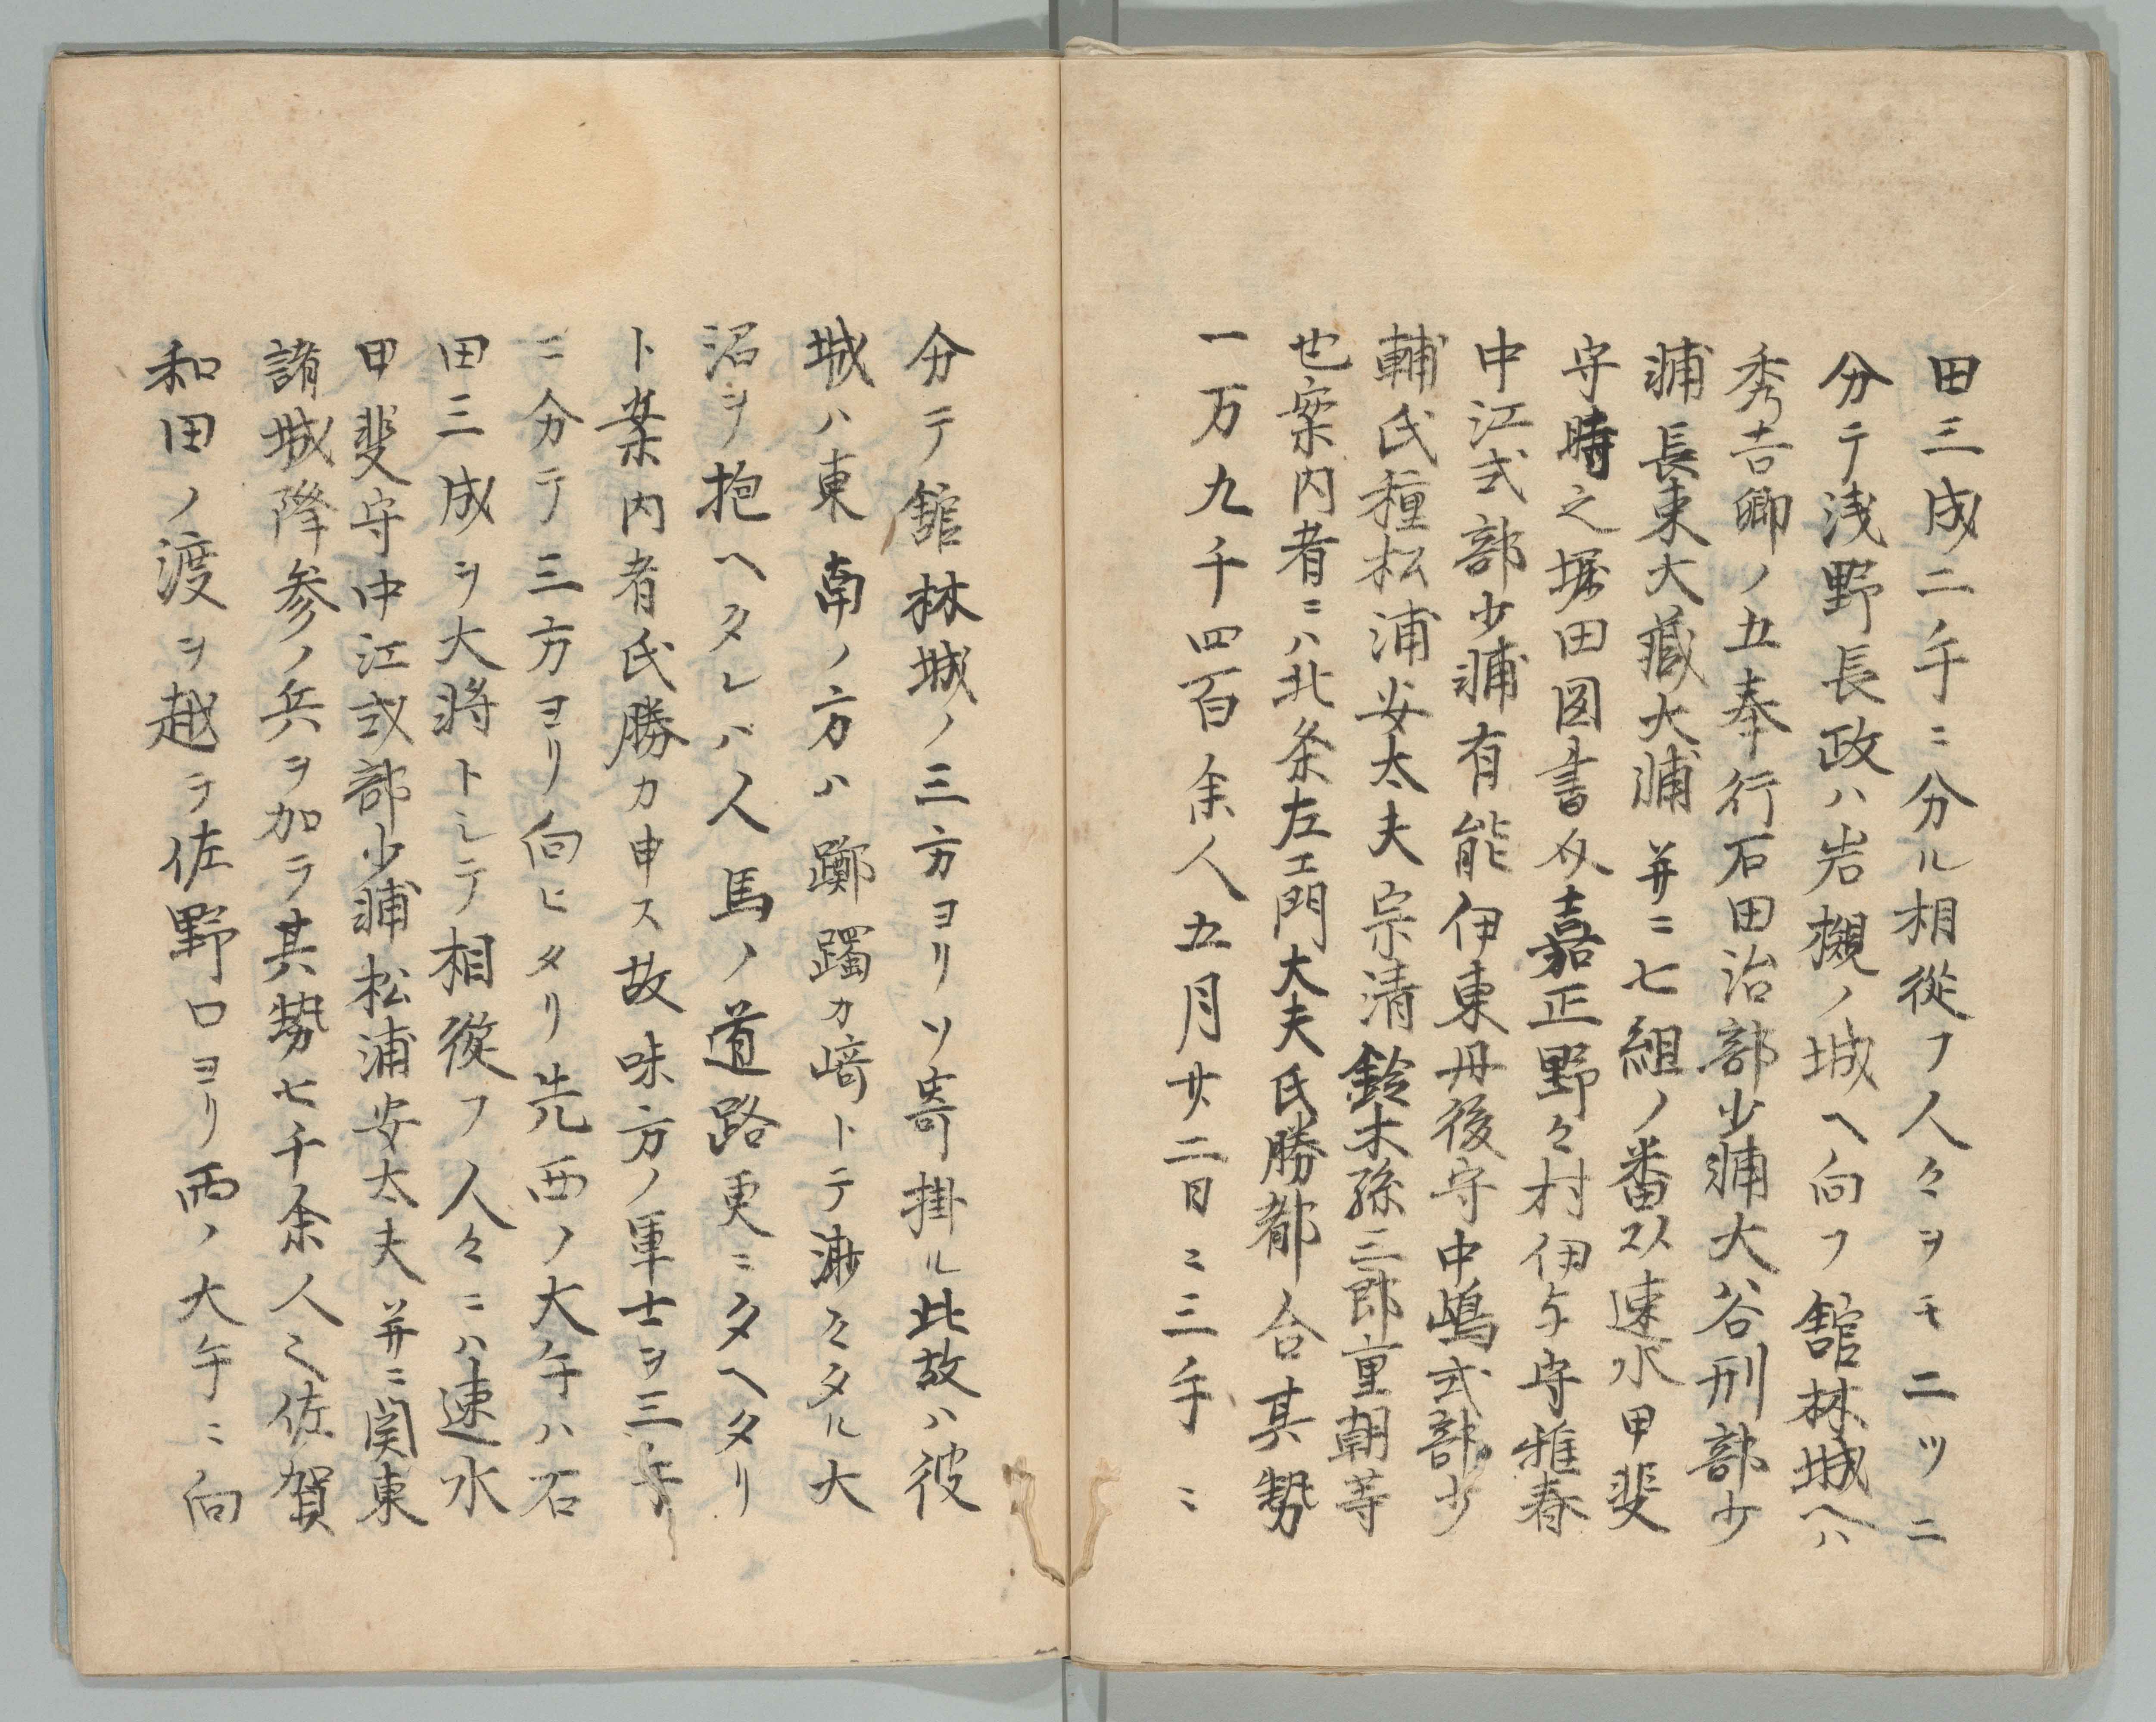 田三成二手ニ分ル相從フ人々ヲモ二ツニ
分テ浅野長政ハ岩槻ノ城ヘ向フ館林城ヘハ
秀吉卿ノ五奉行石田治部少輔大谷刑部少
輔長束大蔵大輔并ニ七組ノ番以速水甲斐
守時之堀田図書介嘉正野々村伊与守雅春
中江式部少輔有能伊東丹後守中嶋式部少
輔氏種松浦安太夫宗清鈴木孫三郎重朝等
也案内者ニハ北条左エ門大夫氏勝都合其勢
一万九千四百余人五月廿二日ニ三手ニ
分テ館林城ノ三方ヨリソ寄掛ル此故ハ彼
城ハ東南ノ方ハ躑躅カ崎トテ渺々タル大
沼ヲ抱ヘタレバ人馬ノ道路更ニタヘタリ
ト案内者氏勝カ申ス故味方ノ軍士ヲ三手
ニ分テ三方ヨリ向ヒタリ先西ノ大手ハ石
田三成ヲ大将トシテ相從フ人々ニハ速水
甲斐守中江式部少輔松浦安太夫并ニ関東
諸城降参ノ兵ヲ加ラ其勢七千余人ニ佐賀
和田ノ渡ヲ越テ佐野口ヨリ西ノ大手ニ向